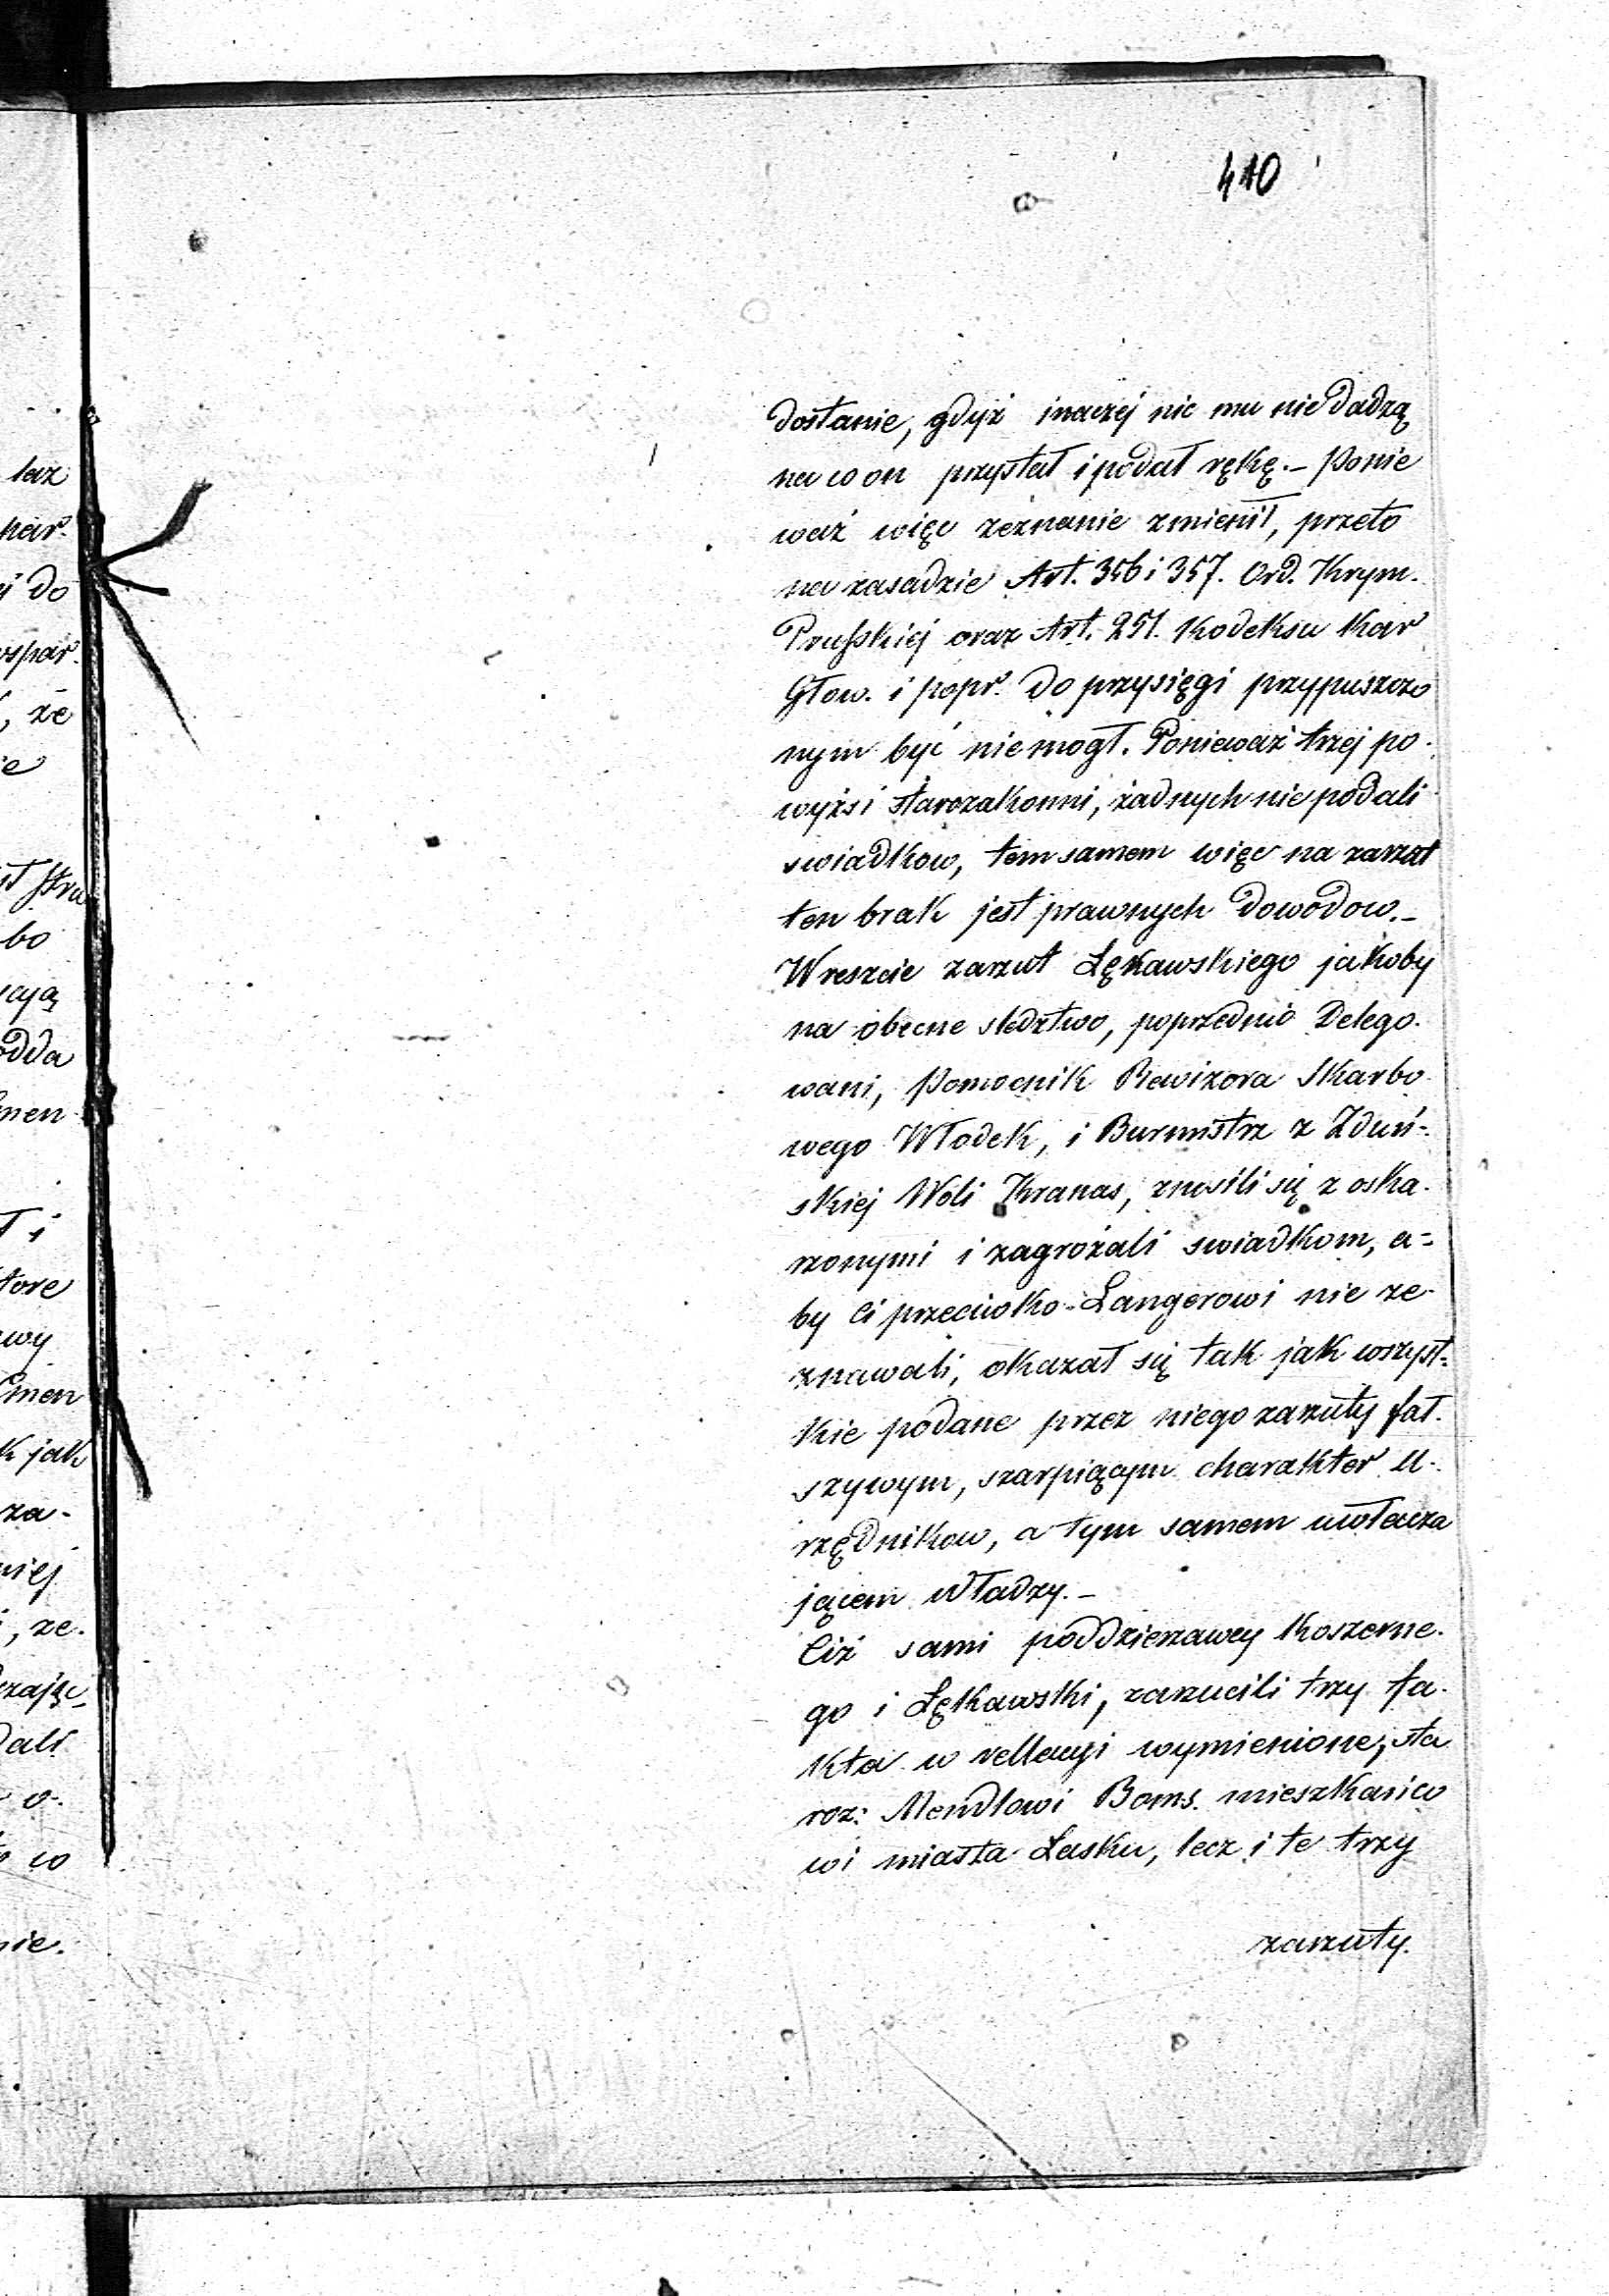 410
dostanie, gdyż inaczej nic mu nie dadzą
na co on przystał i podał rękę. — Ponie
waż więc zeznanie zmienił, przeto
na zasadzie Art. 356 i 357. Ord. Krym.
Prußkiej oraz Art. 251. Kodeksu Kar
Głow. i popr. do przysięgi przypuszczo
nym być nie mogł. Ponieważ trzej po-
wyżsi starozakonni, żadnych nie podali
swiadkow, tem samem więc na zarzut
ten brak jest prawnych dowodow. —
Wreszcie zarzut Łękawskiego jakoby
na obecne sledztwo, poprzednio Delego-
wani, Pomocnik Rewizora Skarbo-
wego Włodek, i Burmistrz z Zduń-
skiej Woli Kranas, znosili się z oska-
rzonymi i zagrożali swiadkom, a-
by Ci przeciwko Langerowi nie ze-
znawali, okazał się tak jak wszyst-
kie podane przez niego zarzuty fał-
szywym, szarpiącym charakter U-
rzędnikow, a tym samem uwłacza
jącem Władzy. —
Ciż sami poddzierzawcy Koszerne-
go i Łękawski, zarzucili trzy fa-
kta w rellacyi wymienione, sta
roz: Mendlowi Boms. mieszkańco
wi miasta Łasku, lecz i te trzy
zarzuty.
laz
kar.
j do
wspar.
, że
ie
bo
cyą
odda
men
ł i
tore
wy
men
k jak
za-
niej
, ze-
zając,
dali
o-
co
nie.